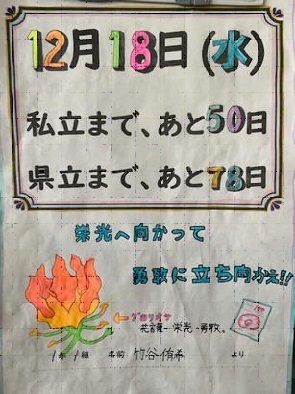 12月18日(水)
私立まで、あと50日
県立まで、あと78日
栄光へ向かって
勇敢に立ち向かえ!!
グロリオサ
花言葉…栄光・勇敢。
1年1組 名前 竹谷侑希 より